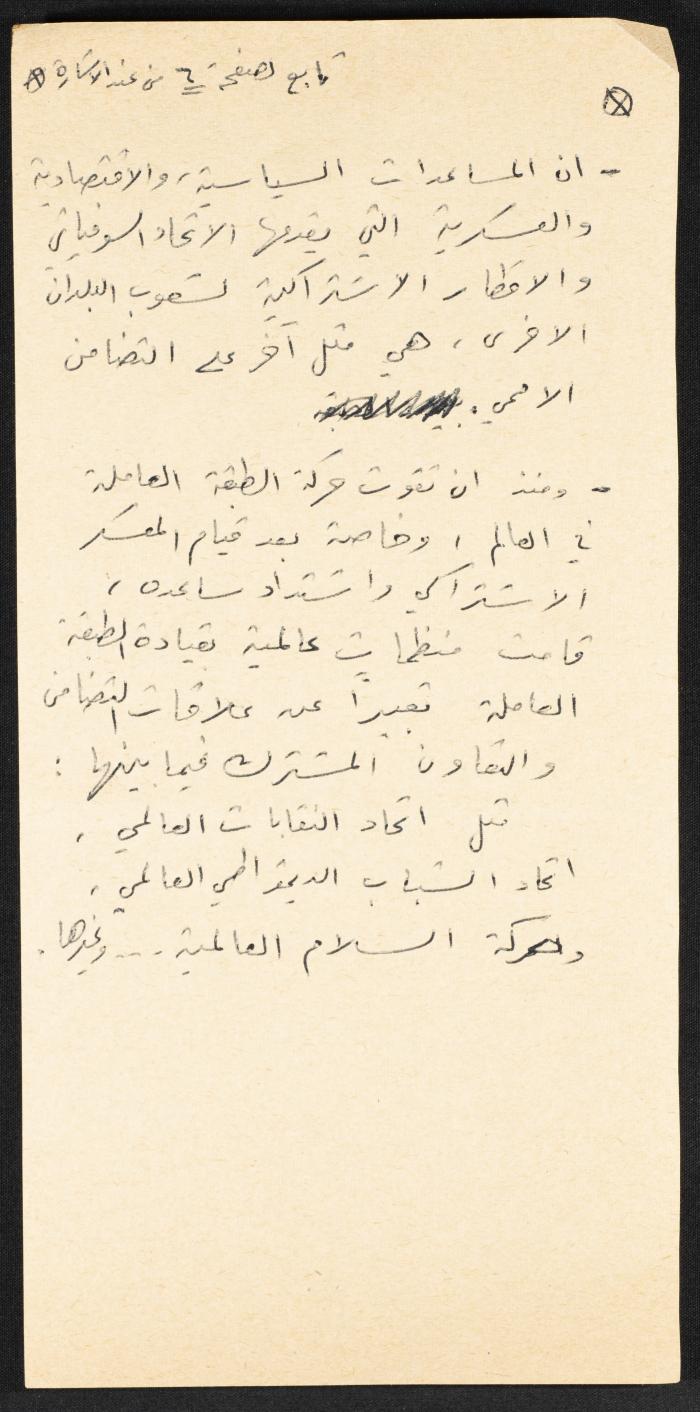 تابع لصفحة ٦ من عند الاشارة ⊗
⊗
- ان المساعدات السياسية، والاقتصادية
والعسكرية التي يقدمها الاتحاد السوفياتي
والاقطار الاشتراكية لشعوب البلدان
الاخرى، هي مثل آخر على التضامن
الاممي.
- ومنذ ان تقوت حركة الطبقة العاملة
في العالم، وخاصة بعد قيام المعسكر
الاشتراكي واشتداد ساعده،
قامت منظمات عالمية بقيادة الطبقة
العاملة تعبيراً عن علاقات التضامن
والتعاون المشترك فيما بينها:
مثل اتحاد النقابات العالمي،
اتحاد الشباب الديمقراطي العالمي،
وحركة السلام العالمية... وغيرها.